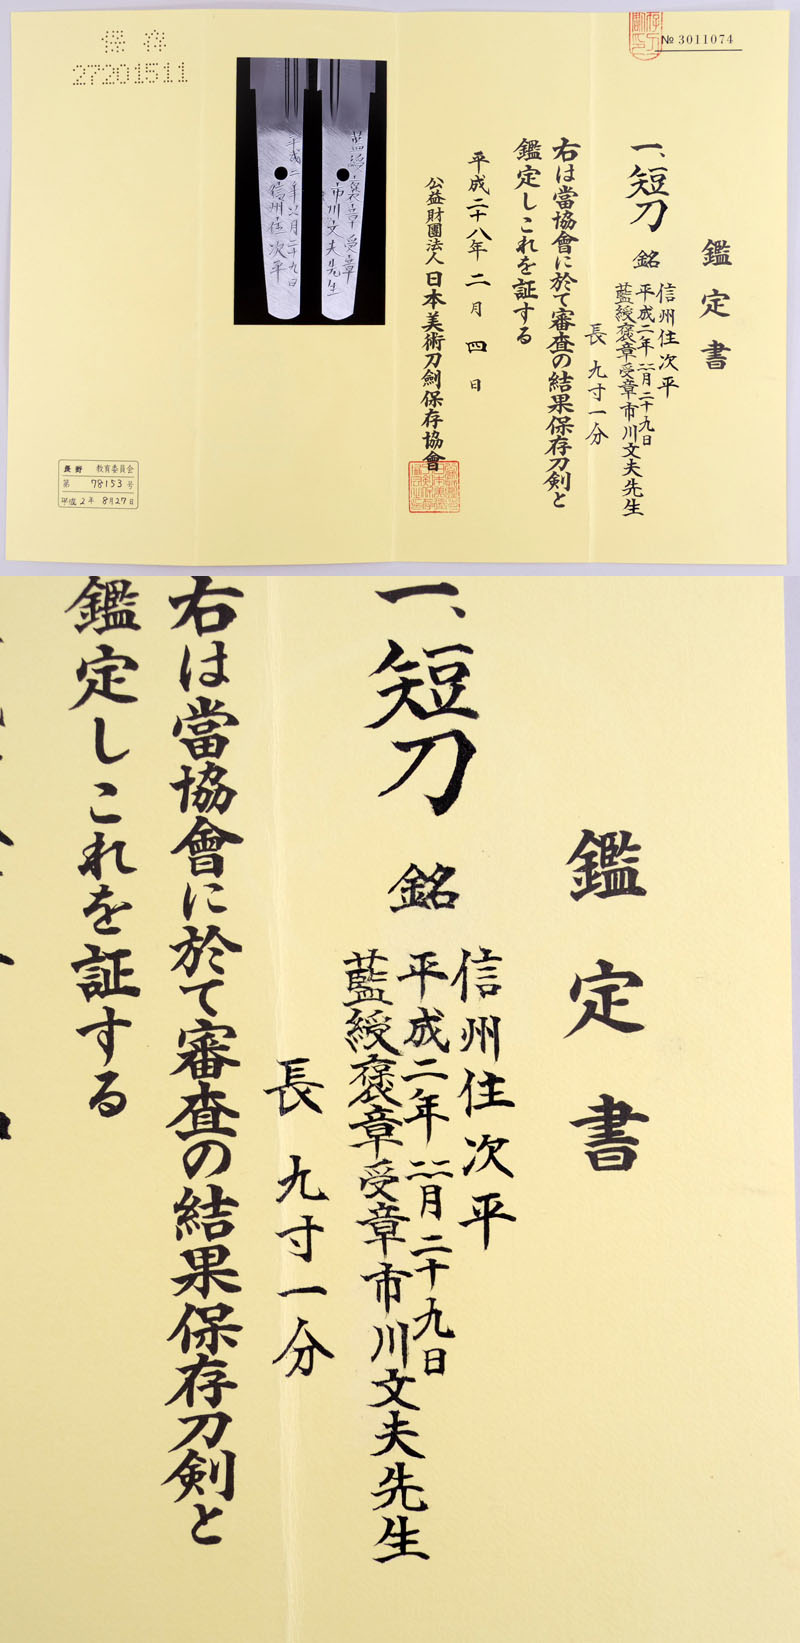 保存
27201511
№ 3011074
鑑定書
一、短刀 銘
信州住次平
平成二年二月二十九日
藍綬褒章受章市川文夫先生
長 九寸一分
右は當協會に於て審査の結果保存刀剣と
鑑定しこれを証する
平成二十八年二月四日
公益財團法人日本美術刀劍保存協會
市川文夫先生
信州住次平
長野 教育委員会
第 78153 号
平成2年 8月27日
鑑定書
一、短刀 銘
信州住次平
平成二年二月二十九日
藍綬褒章受章市川文夫先生
長 九寸一分
右は當協會に於て審査の結果保存刀剣と
鑑定しこれを証する